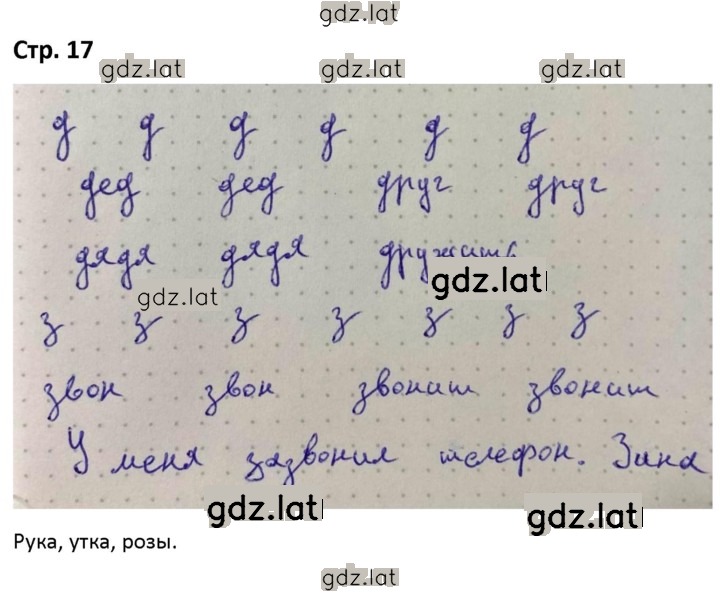 gdz.lat
Стр. 17
gdz.lat gdz.lat gdz.lat
д д д д д д
дед дед друг друг
дядя дядя дружить
gdz.lat
gdz.lat
з з з з з з з
звон звон звонит звонит
У меня зазвонил телефон. Зина
gdz.lat gdz.lat
Рука, утка, розы.
gdz.lat